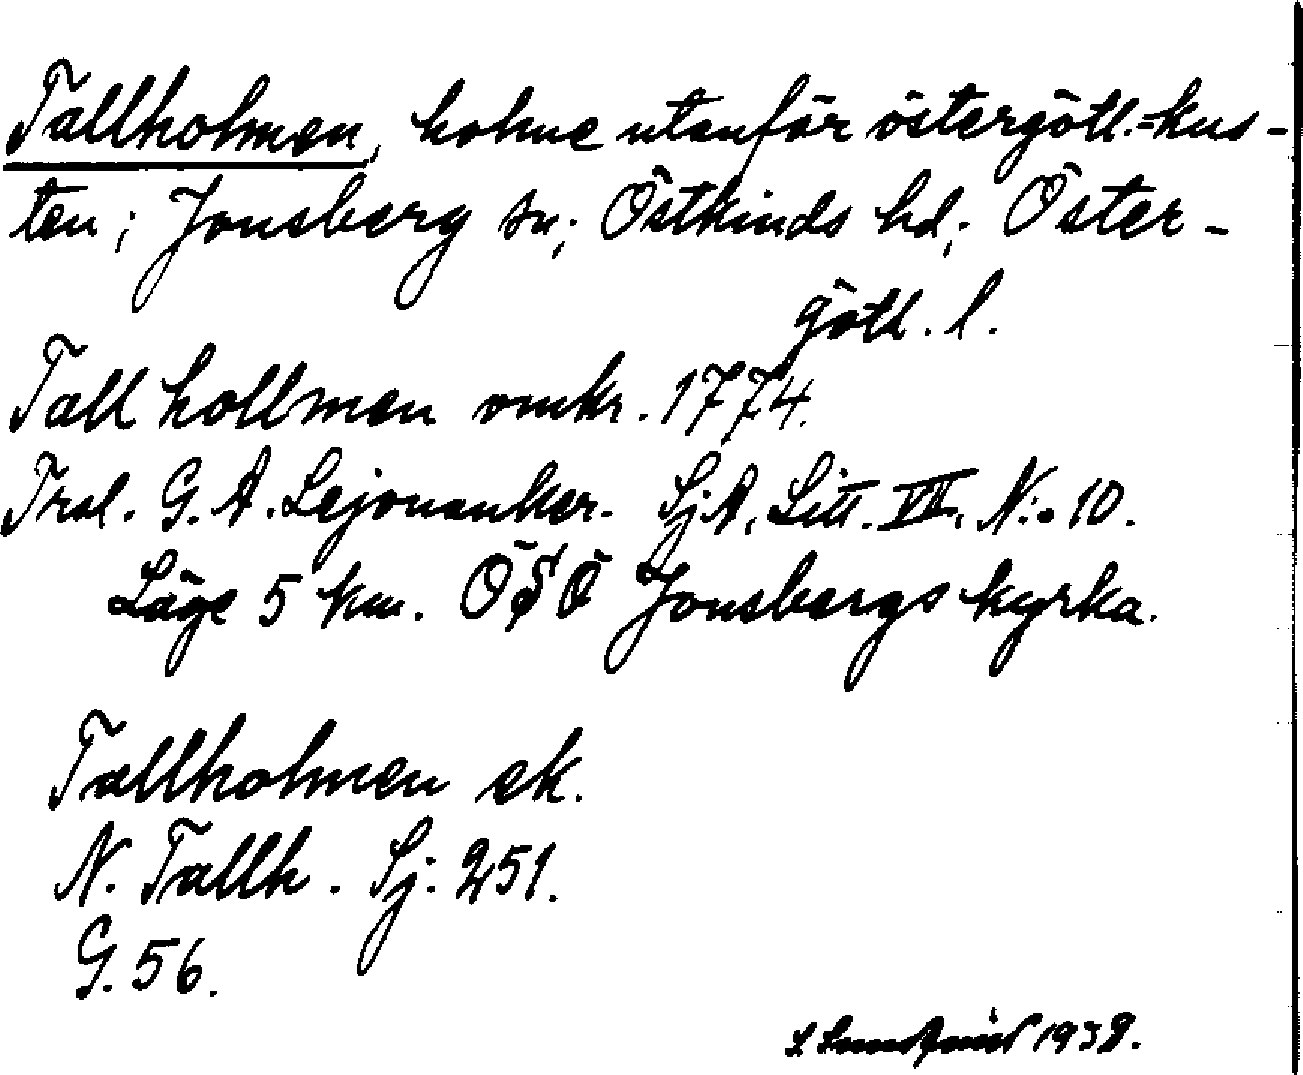 Tallholmen, holme utanför östergötl.-kus-
ten; Jonsberg sn; Östkinds hd; Öster-
götl. l.
Tall hollmen omkr. 1774.
Trol. G. A. Lejonanker. Sj.A, Litt. VII, N:o 10.
Läge 5 km. OSO Jonsbergs kyrka.
Tallholmen ek.
N. Tallh. Sj. 251.
G. 56.
1938.